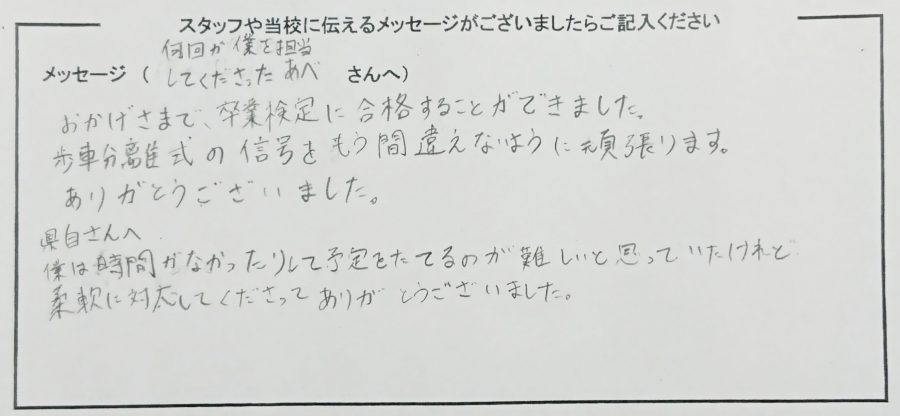 スタッフや当校に伝えるメッセージがございましたらご記入ください
何回か僕を担当
メッセージ ( してくださった あべ さんへ)
おかげさまで、卒業検定に合格することができました。
歩車分離式の信号をもう間違えないように頑張ります。
ありがとうございました。
県自さんへ
僕は時間がなかったりして予定をたてるのが難しいと思っていたけれど
柔軟に対応してくださってありがとうございました。